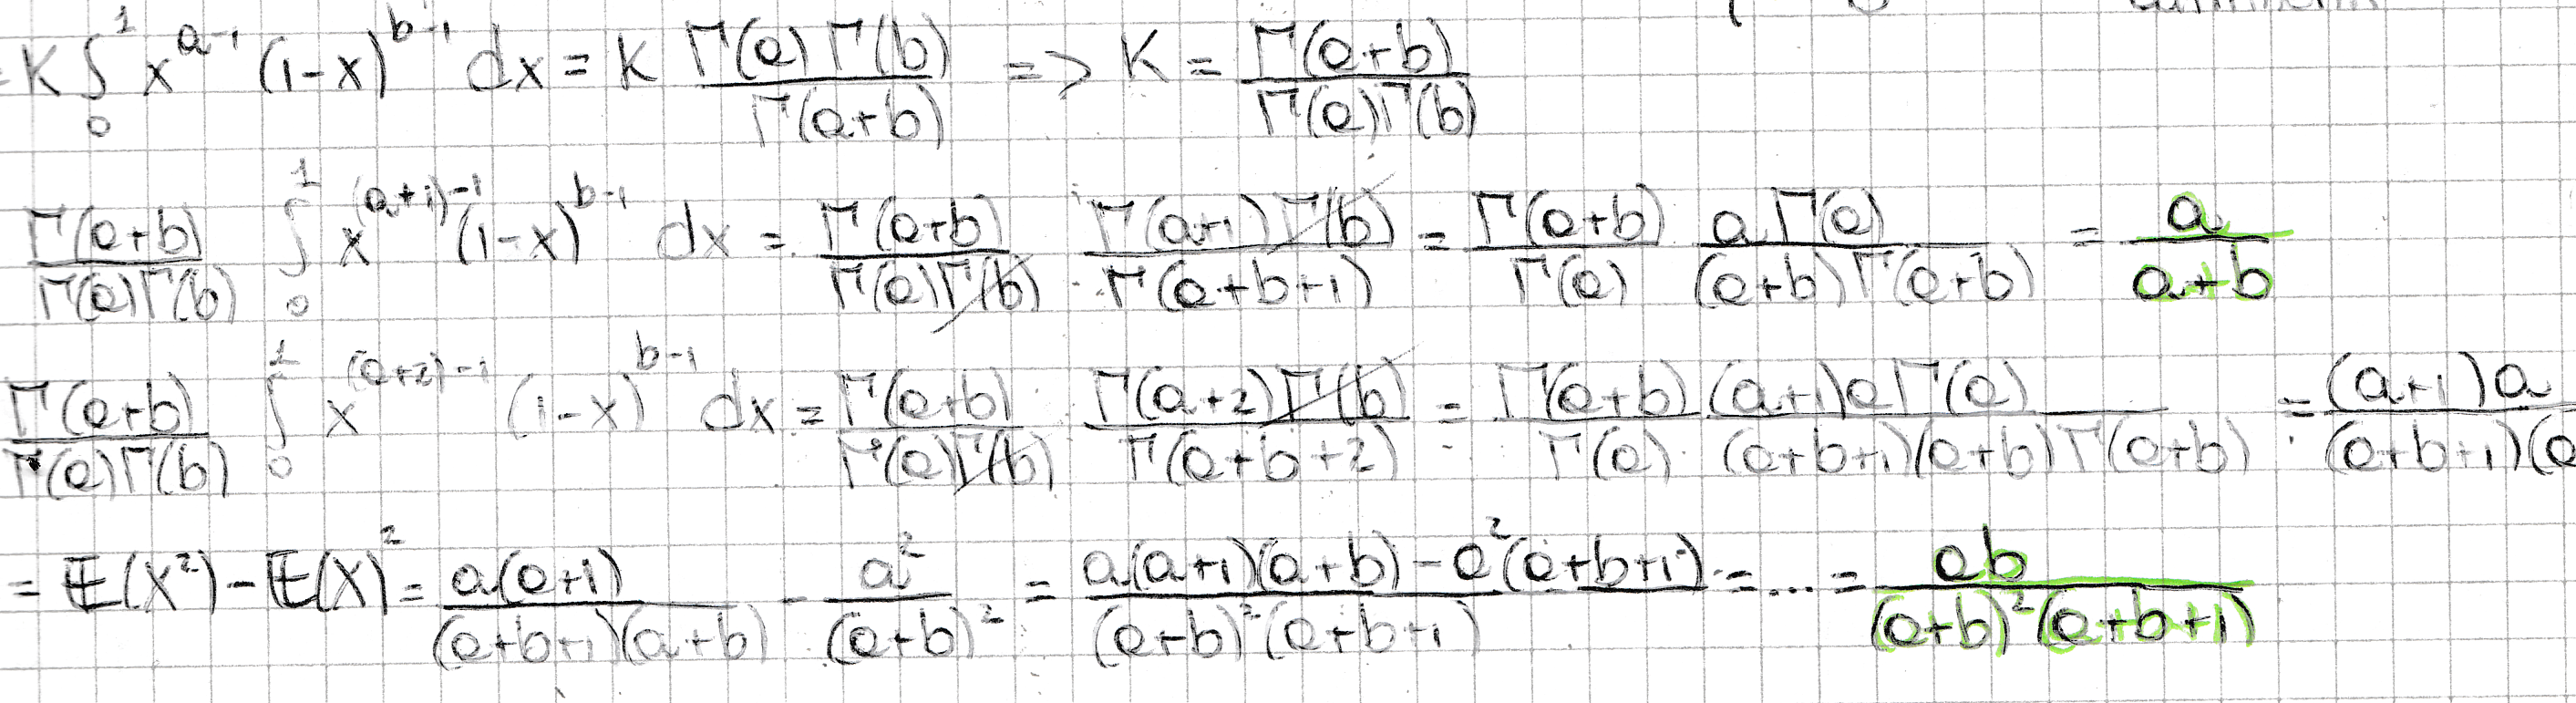 = K ∫₀¹ x^(a-1) (1-x)^(b-1) dx = K Γ(a)Γ(b) / Γ(a+b) => K = Γ(a+b) / Γ(a)Γ(b)
Γ(a+b) / Γ(a)Γ(b) ∫₀¹ x^((a+1)-1) (1-x)^(b-1) dx = Γ(a+b) / Γ(a)Γ(b) · Γ(a+1)Γ(b) / Γ(a+b+1) = Γ(a+b) / Γ(a) · aΓ(a) / (a+b)Γ(a+b) = a / a+b
Γ(a+b) / Γ(a)Γ(b) ∫₀¹ x^((a+2)-1) (1-x)^(b-1) dx = Γ(a+b) / Γ(a)Γ(b) · Γ(a+2)Γ(b) / Γ(a+b+2) = Γ(a+b) / Γ(a) · (a+1)aΓ(a) / (a+b+1)(a+b)Γ(a+b) = (a+1)a / (a+b+1)(a
= 𝔼(X²) - 𝔼(X)² = a(a+1) / (a+b+1)(a+b) - a² / (a+b)² = a(a+1)(a+b) - a²(a+b+1) / (a+b)²(a+b+1) = ... = ab / (a+b)²(a+b+1)